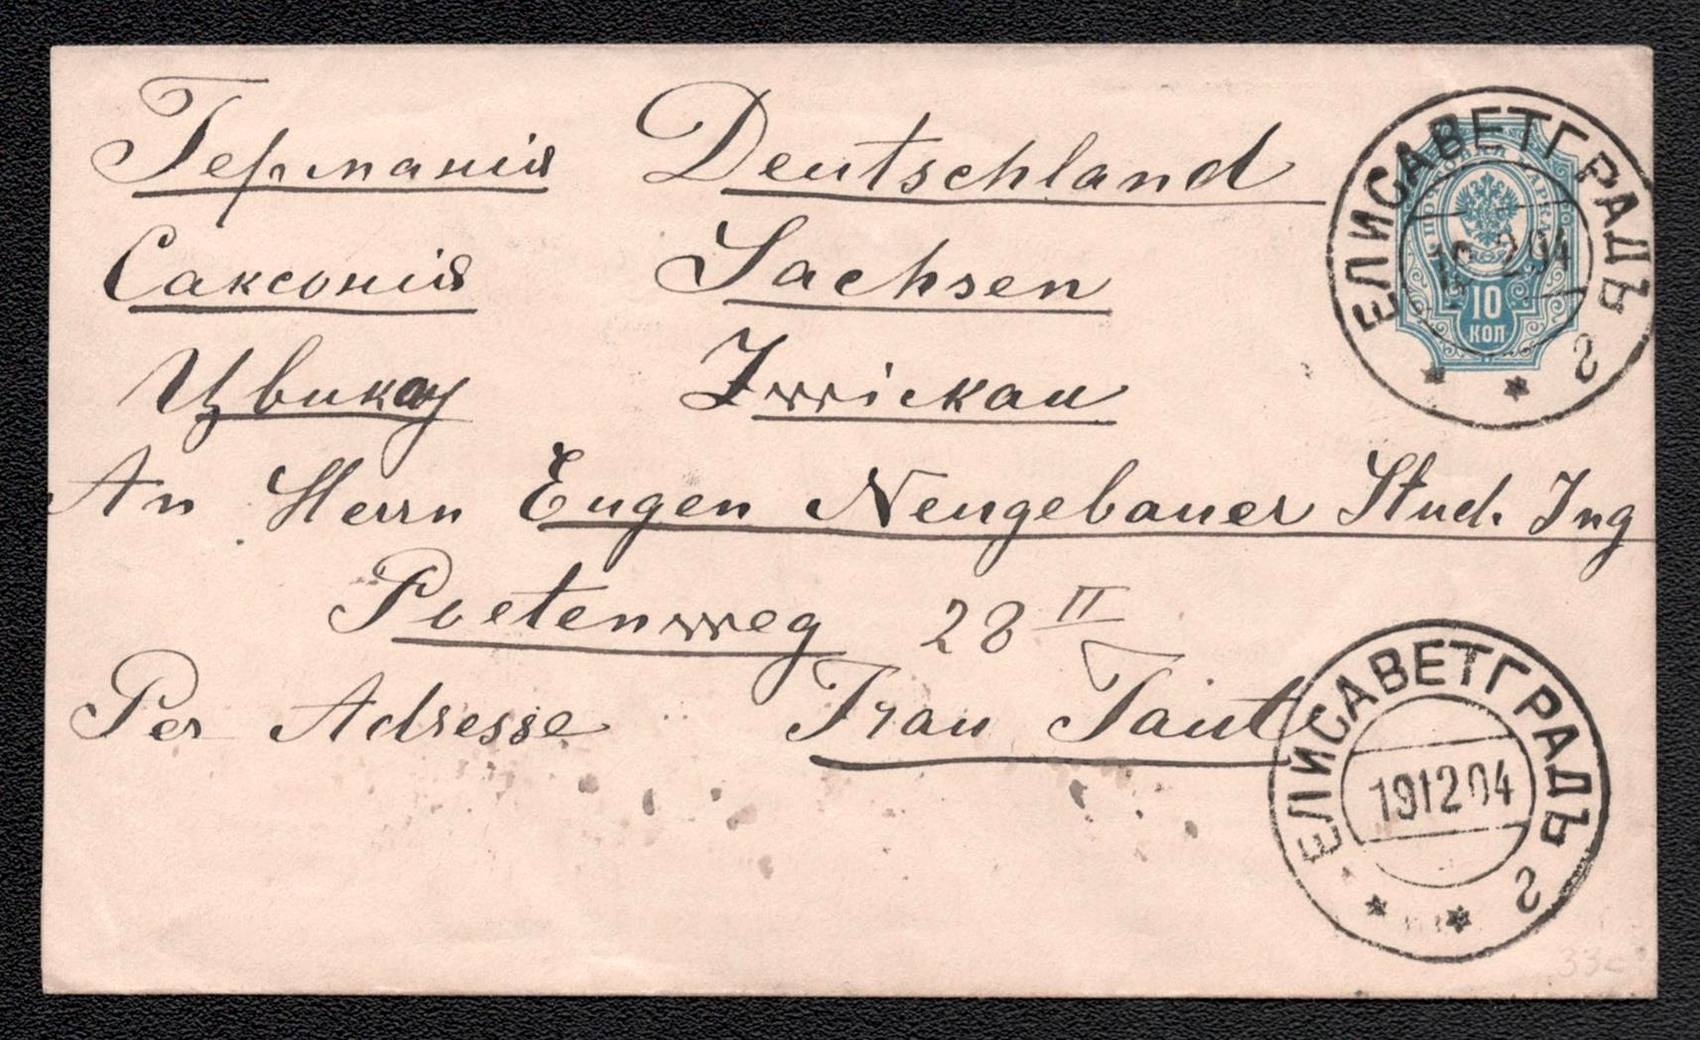 Германія Deutschland
Саксонія Sachsen
Цвикау Zwickau
An Herrn Eugen Neugebauer Stud. Ing
Poetenweg 28 II
Per Adresse Frau Taut
ЕЛИСАВЕТГРАДЪ 2
10 КОП
ЕЛИСАВЕТГРАДЪ 2
191204
33c